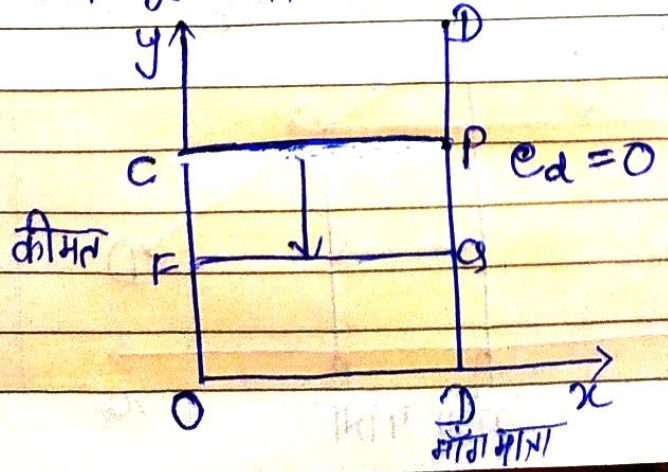 y D
C P ed = 0
कीमत
F Q
O D x
माँग मात्रा